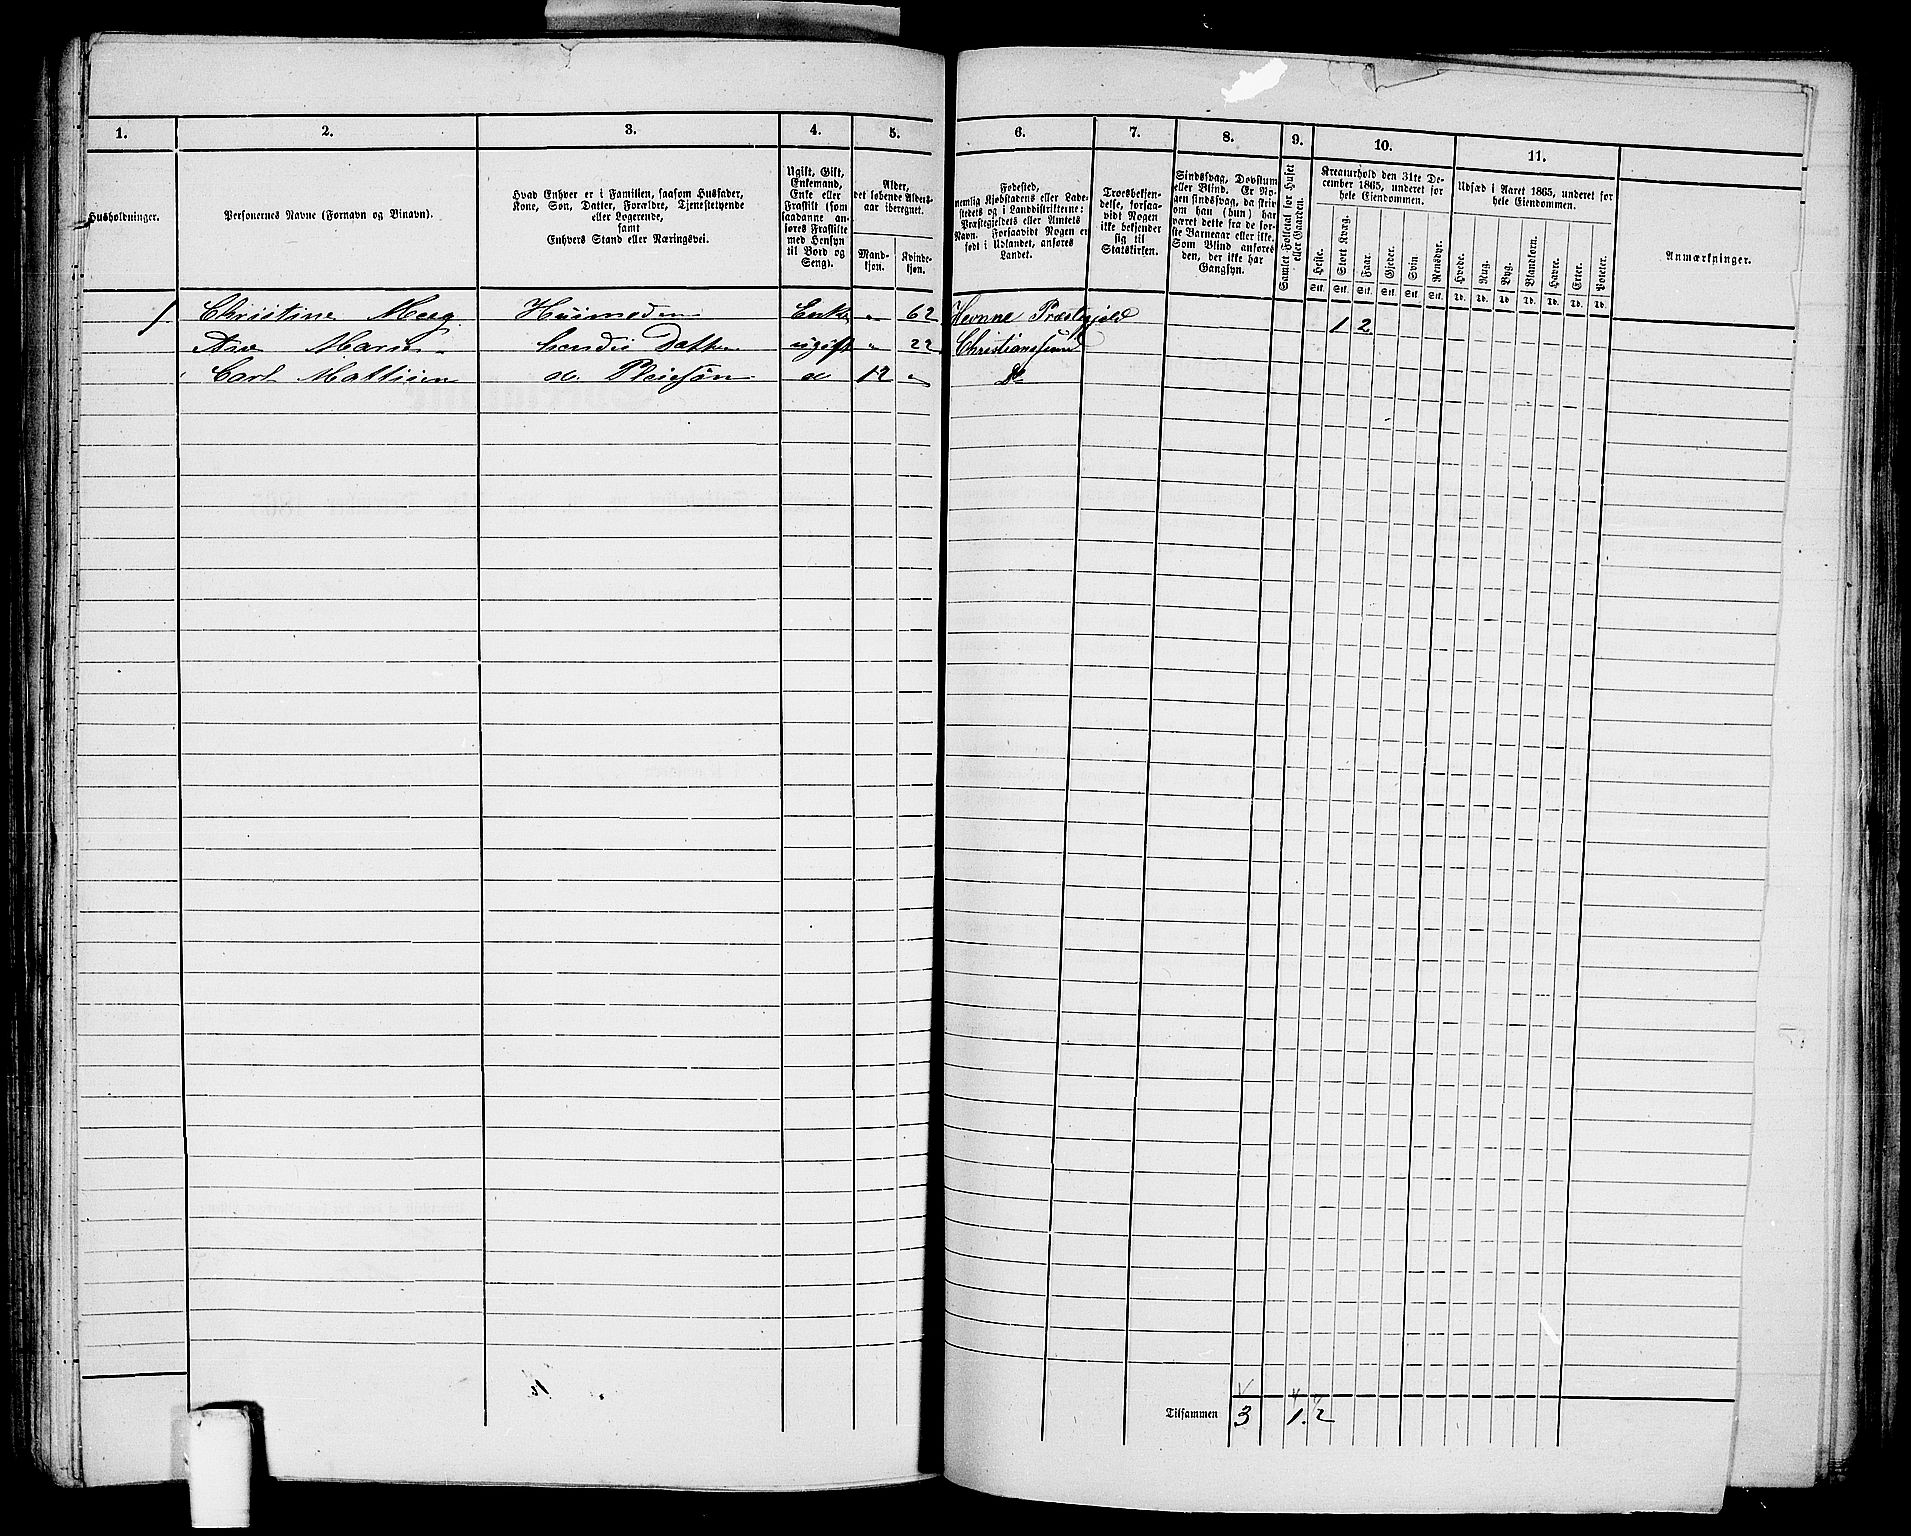 1. 2. 3. 4. 5. 6. 7. 8. 9. 10. 11.
Husholdninger.
Personernes Navne (Fornavn og Binavn).
Hvad Enhver er i Familien, saasom Husfader,
Kone, Søn, Datter, Forældre, Tjenestetyende
eller Logerende,
samt
Enhvers Stand eller Næringsvei.
Ugift, Gift,
Enkemand,
Enke eller
Fraskilt (som
saadanne an-
føres Fraskilte
med Hensyn
til Bord og
Seng).
Alder,
det løbende Alders-
aar iberegnet.
Mand-
kjøn.
Kvinde-
kjøn.
Fødested,
nemlig Kjøbstadens eller Lade-
stedets og i Landdistrikterne:
Præstegjeldets eller Amtets
Navn. Forsaavidt Nogen er
født i Udlandet, anføres
Landet.
Troesbekjen-
delse, forsaa-
vidt Nogen
ikke bekjender
sig til
Statskirken.
Sindssvag, Døvstum
eller Blind. Er No-
gen sindssvag, da skriv
om han (hun) har
været dette fra de før-
ste Barneaar eller ikke.
Som Blind anføres
den, der ikke har
Gangsyn.
Samlet Folketal for Huset
eller Gaarden.
Kreaturhold den 31te De-
cember 1865, underet for
hele Eiendommen.
Heste.
Stort Kvæg.
Faar.
Gjeder.
Svin.
Rensdyr.
Stk. Stk. Stk. Stk. Stk. Stk.
Udsæd i Aaret 1865, underet for
hele Eiendommen.
Hvede.
Rug.
Byg.
Blandkorn.
Havre.
Erter.
Poteter.
Td. Td. Td. Td. Td. Td. Td.
Anmærkninger.
1 Christine Enke " 62 Hevnne Præstegjeld 1 2
Marie hendes Datter ugift " 22 Christianssund
Carl do Pleiesøn do 12 " Do
Tilsammen 3 1. 2